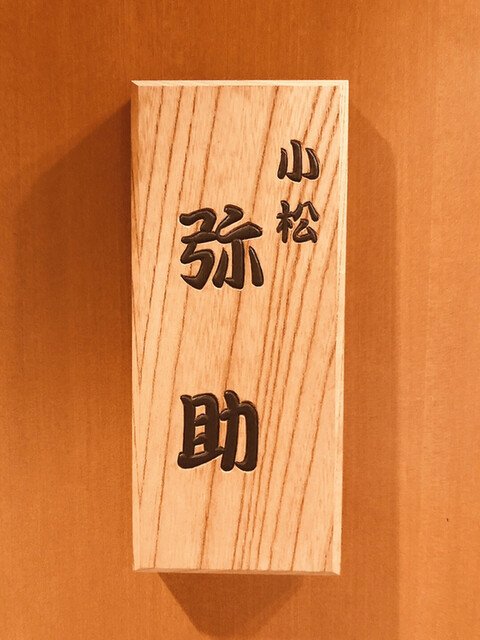 小松
弥助